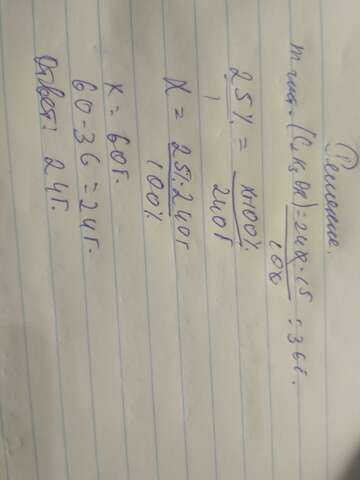 Решение.
m чист. (C₂H₅OH) = 240·15 / 100 = 36г.
25% = x·100% / 240г
X = 25%·240г / 100%
x = 60г.
60-36=24г.
Ответ: 24г.